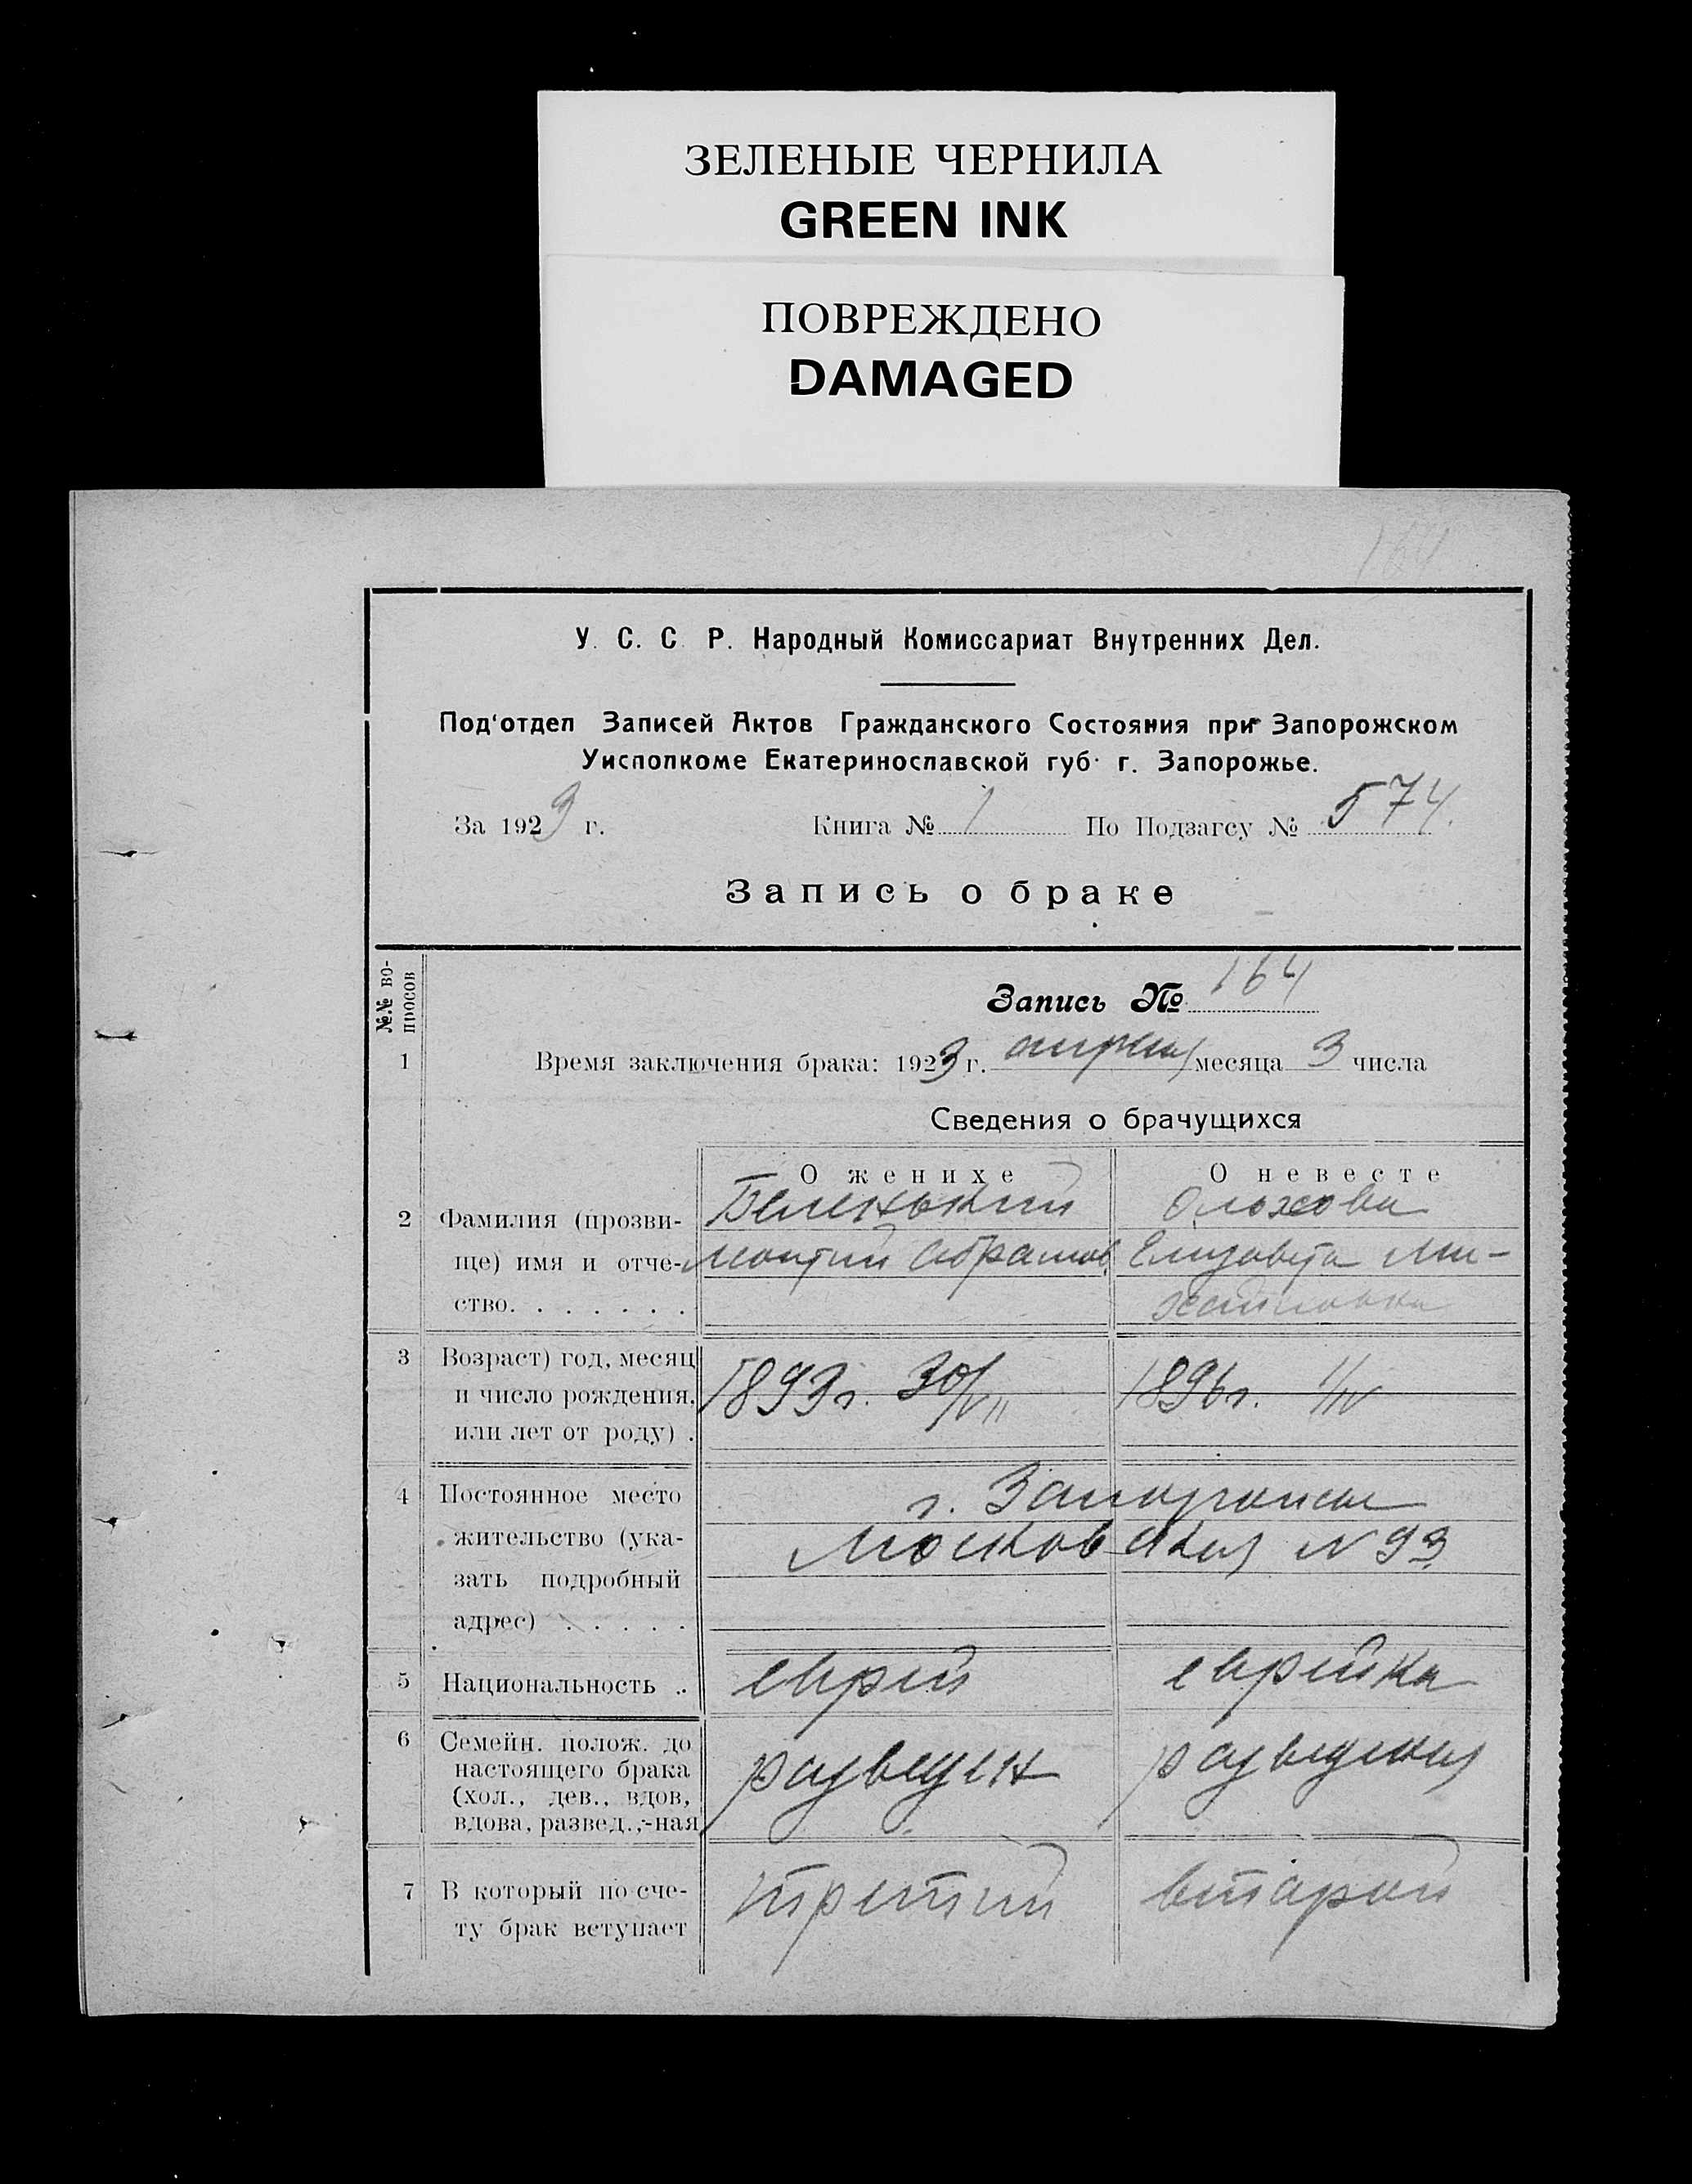 ЗЕЛЕНЫЕ ЧЕРНИЛА
GREEN INK
ПОВРЕЖДЕНО
DAMAGED
164
У. С. С. Р. Народный Комиссариат Внутренних Дел.
Под'отдел Записей Актов Гражданского Состояния при Запорожском
Уисполкоме Екатеринославской губ. г. Запорожье.
За 1923 г. Книга № 1 По Подзагсу № 574.
Запись о браке
№.№ вопросов
Запись № 164
1 Время заключения брака: 1923 г. апреля месяца 3 числа
Сведения о брачущихся
О женихе О невесте
2 Фамилия (прозви- Беленький Ольхова
ще) имя и отче- Абрамов Елизавета Ми-
ство. . . . . . . хайловна
3 Возраст) год, месяц
и число рождения, 1893 г. 30/VII 1896 г. 1/IV
или лет от роду) .
4 Постоянное место г. Запорожье
жительство (ука- Московская N 93
зать подробный
адрес) . . . . .
5 Национальность .. еврей еврейка
6 Семейн. полож. до
настоящего брака разведен разведеная
(хол., дев., вдов,
вдова, развед.,-ная
7 В который по сче- третий вторый
ту брак вступает